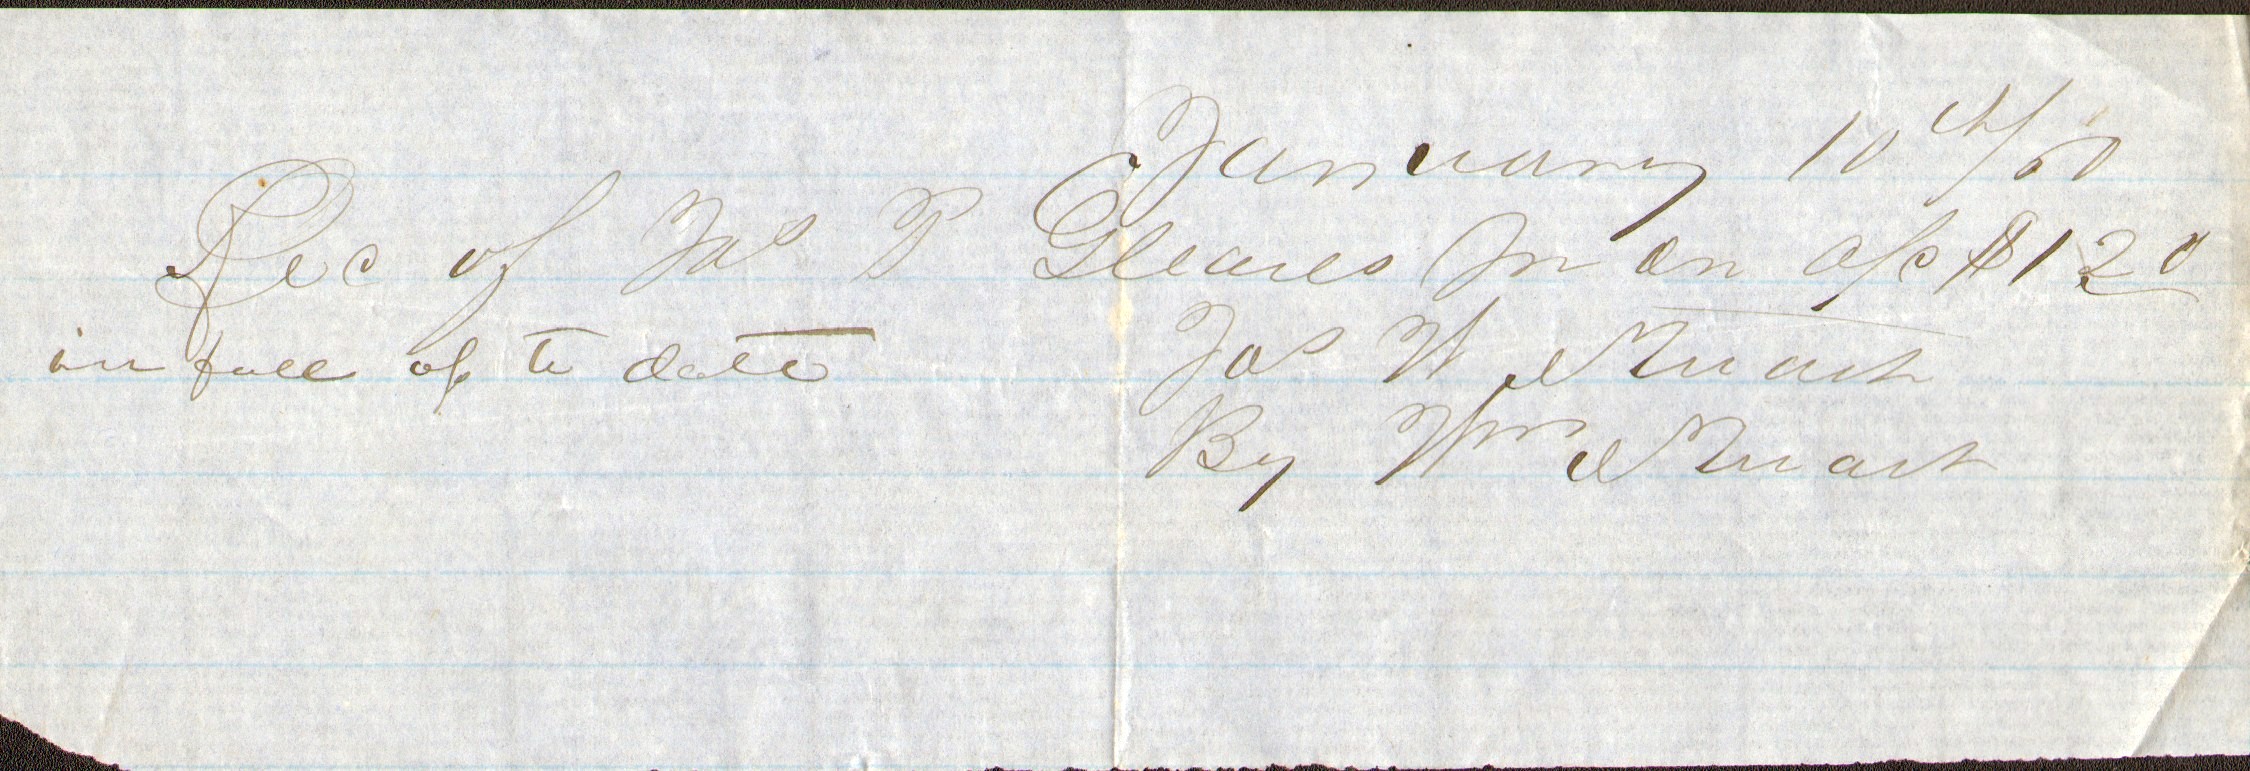 January 10th/60
Rec of Jas T Gleaves Jr on a/c $120
in full of to date
Jas W Stuart
By Wm Stuart